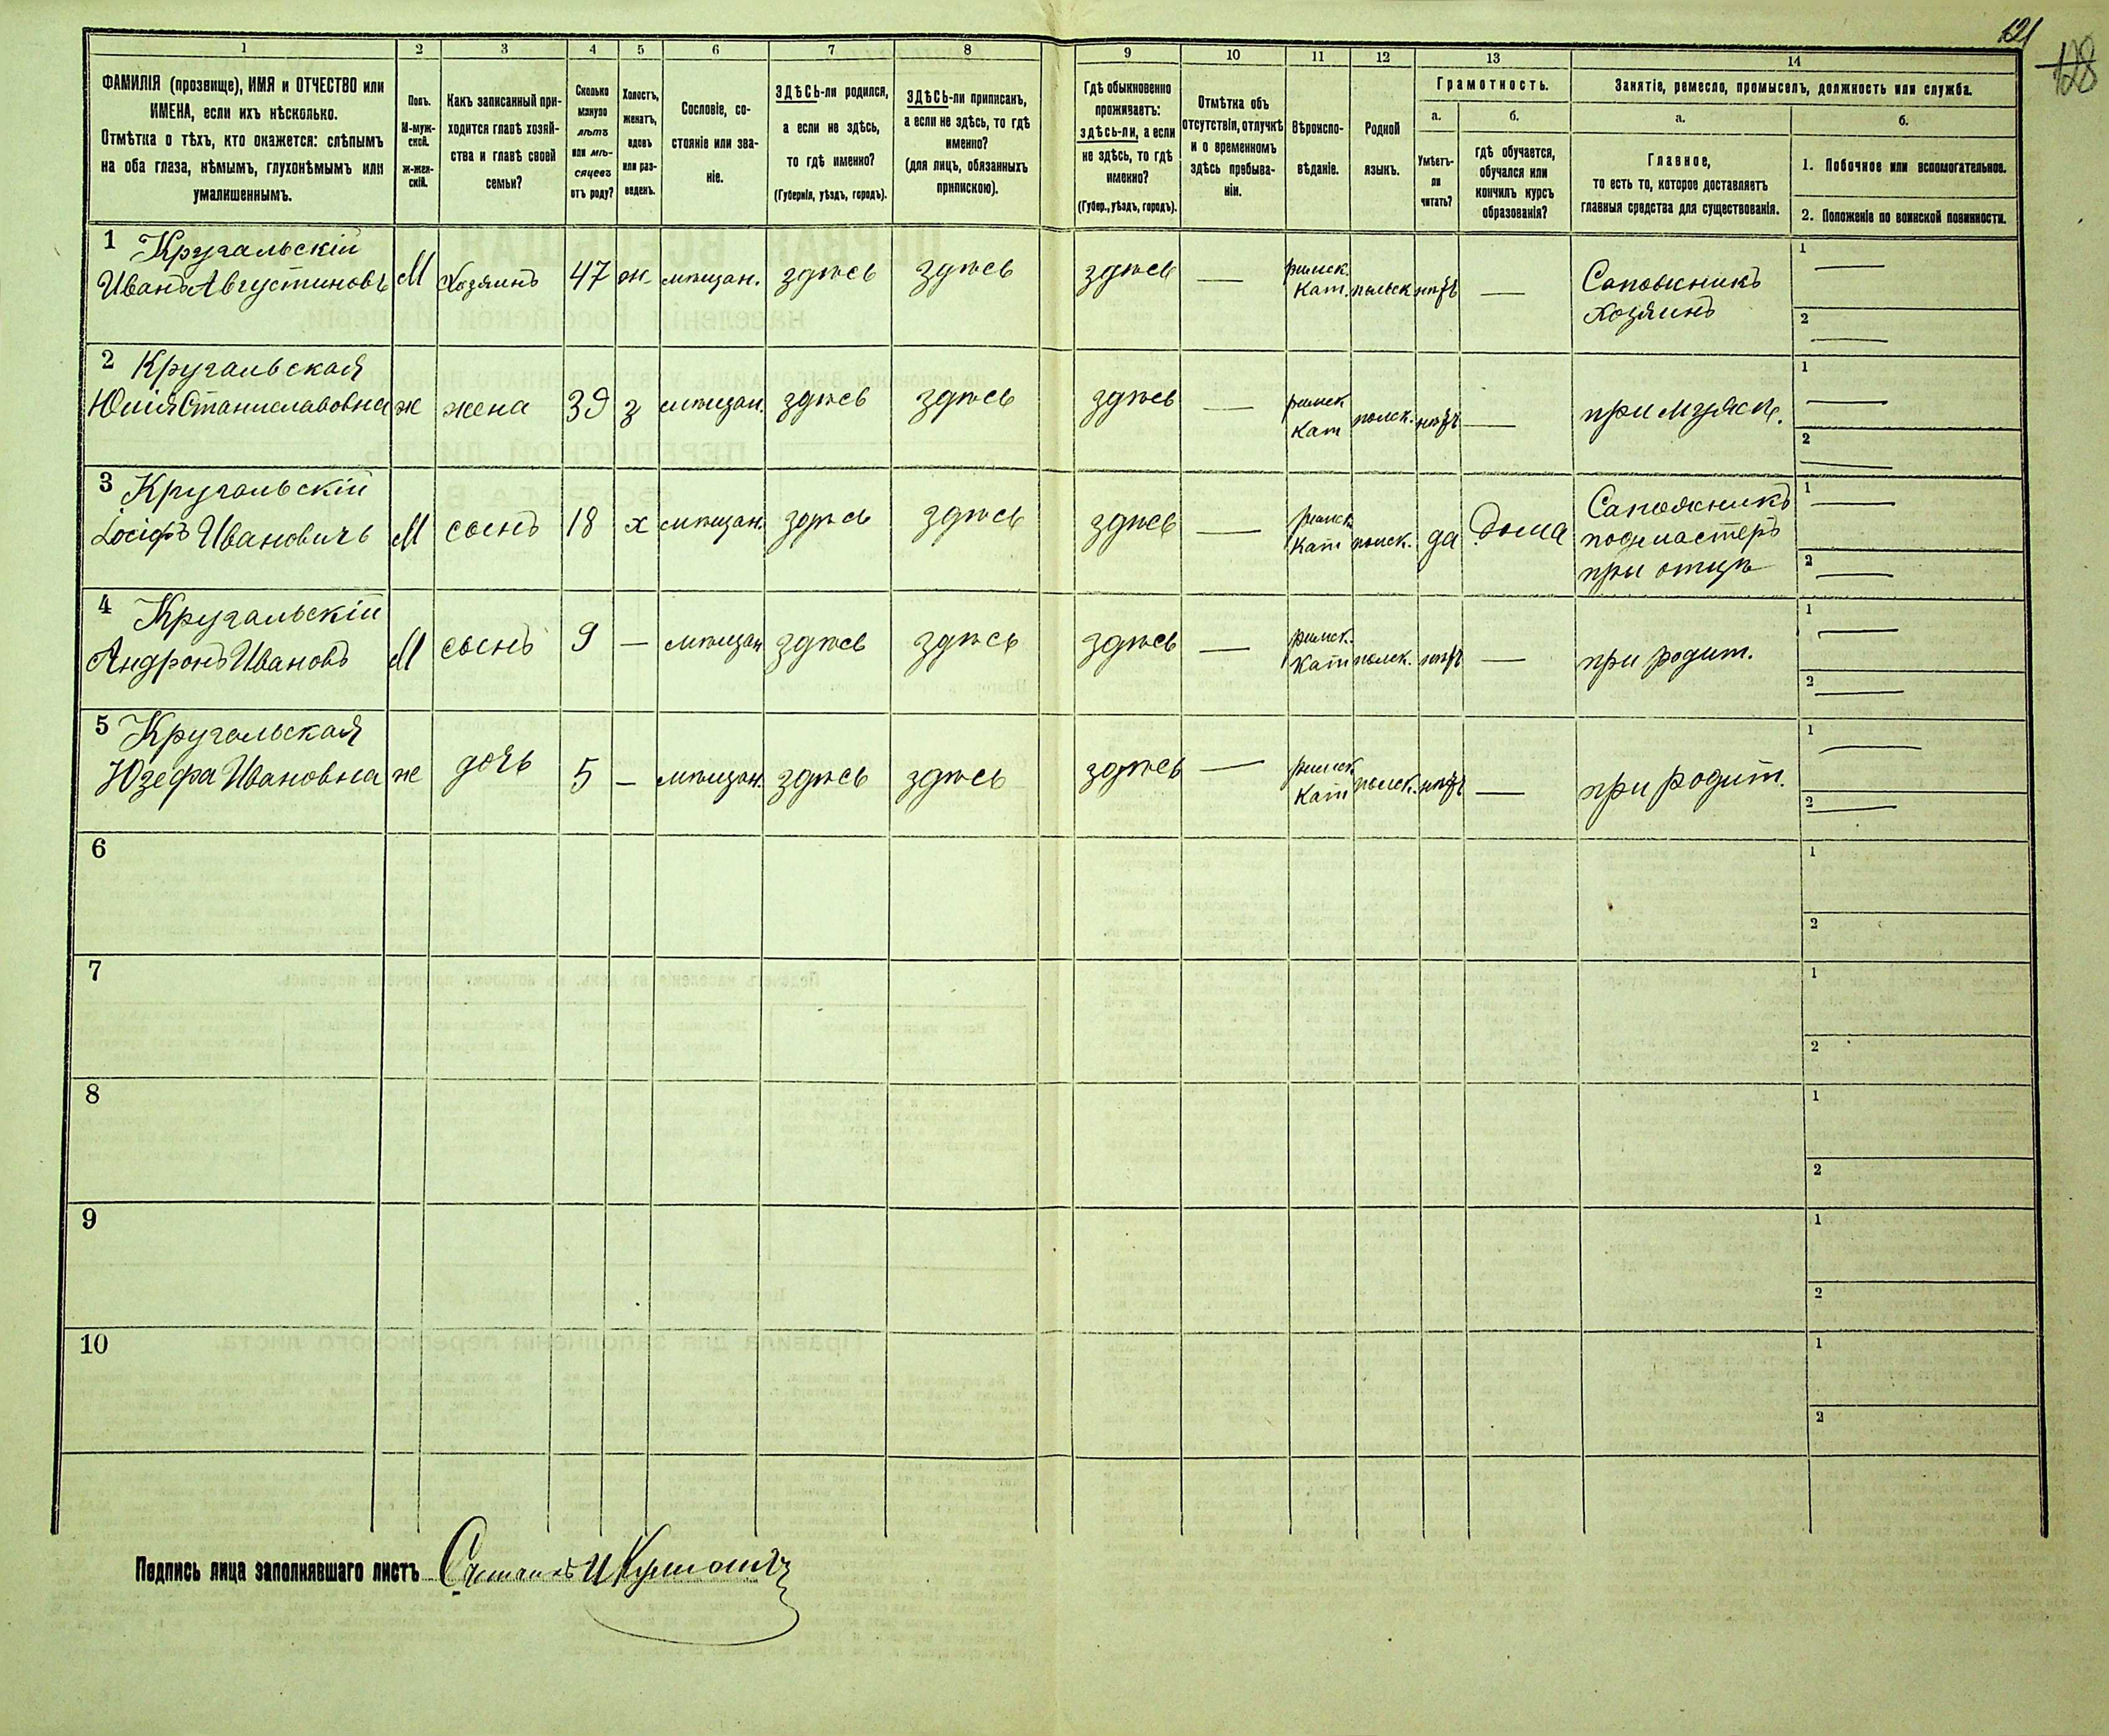 121
128
1
2
3
4
5
6
7
8
9
10
11
12
13
14
ФАМИЛІЯ (прозвище), ИМЯ и ОТЧЕСТВО или
ИМЕНА, если ихъ нѣсколько.
Отмѣтка о тѣхъ, кто окажется: слѣпымъ
на оба глаза, нѣмымъ, глухонѣмымъ или
умалишеннымъ.
Полъ.
М-муж-
ской.
Ж-жен-
скій.
Какъ записанный при-
ходится главѣ хозяй-
ства и главѣ своей
семьи?
Сколько
минуло
лѣтъ
или мѣ-
сяцевъ
отъ роду?
Холостъ,
женатъ,
вдовъ
или раз-
веденъ.
Сословіе, со-
стояніе или зва-
ніе.
ЗДѢСЬ-ли родился,
а если не здѣсь,
то гдѣ именно?
(Губернія, уѣздъ, городъ).
ЗДѢСЬ-ли приписанъ,
а если не здѣсь, то гдѣ
именно?
(для лицъ, обязанныхъ
припискою).
Гдѣ обыкновенно
проживаетъ:
здѣсь-ли, а если
не здѣсь, то гдѣ
именно?
(Губер., уѣздъ, городъ).
Отмѣтка объ
отсутствіи, отлучкѣ
и о временномъ
здѣсь пребыва-
ніи.
Вѣроиспо-
вѣданіе.
Родной
языкъ.
Грамотность.
а.
Умѣетъ-
ли
читать?
б.
гдѣ обучается,
обучался или
кончилъ курсъ
образованія?
Занятіе, ремесло, промыселъ, должность или служба.
а.
Главное,
то есть то, которое доставляетъ
главныя средства для существованія.
б.
1. Побочное или вспомогательное.
2. Положеніе по воинской повинности.
1 Кругальскій
Иванъ Августиновъ М Хозяинъ 47 ж. мѣщан. здѣсь здѣсь здѣсь — римск. Кат. польск нѣтъ — Сапожникъ Хозяинъ 1 — 2 —
2 Кругальская
Юлія Станиславовна ж жена 39 з мѣщан. здѣсь здѣсь здѣсь — римск Кат польск. нѣтъ — при мужѣ. 1 — 2 —
3 Кругальскій
Іосифъ Ивановичъ М сынъ 18 х мѣщан. здѣсь здѣсь здѣсь — римск Кат польск. да Дома Сапожникъ подмастеръ при отцѣ 1 — 2 —
4 Кругальскій
Андронъ Ивановъ М сынъ 9 — мѣщан здѣсь здѣсь здѣсь — римск. Кат польск. нѣтъ — при родит. 1 — 2 —
5 Кругальская
Юзефа Ивановна ж дочь 5 — мѣщан. здѣсь здѣсь здѣсь — римск Кат польск. нѣтъ — при родит. 1 — 2 —
6 1 2
7 1 2
8 1 2
9 1 2
10 1 2
Подпись лица заполнявшаго листъ